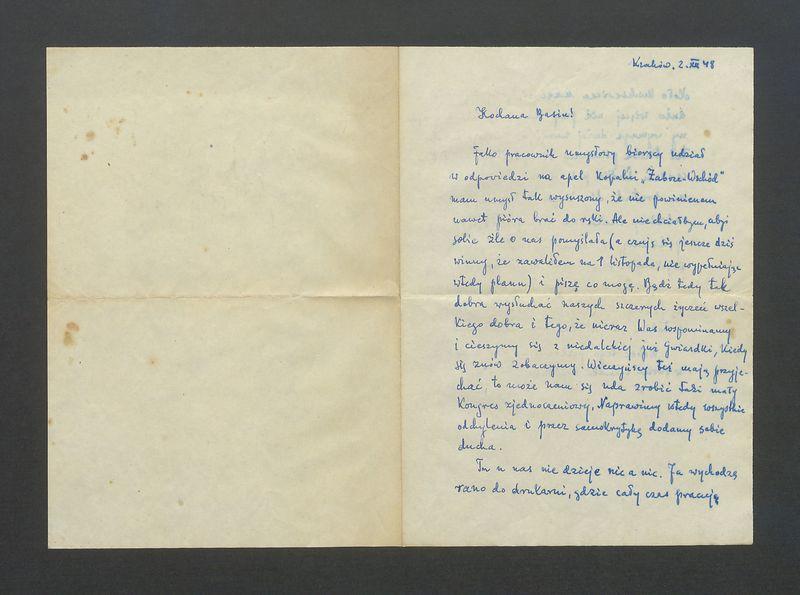 Kraków, 2.XII 48
Kochana Basiu!
Jako pracownik umysłowy biorący udział
w odpowiedzi na apel kopalni „Zabrze-Wschód"
mam umysł tak wysuszony, że nie powinienem
nawet pióra brać do ręki. Ale nie chciałbym, abyś
sobie źle o nas pomyślała (a czuję się jeszcze dziś
winny, że zawaliłem na 1 listopada, nie wypełniając
wtedy planu) i piszę co mogę. Bądź tedy tak
dobra wysłuchać naszych szczerych życzeń wszel-
kiego dobra i tego, że nieraz Was wspominamy
i cieszymy się z niedalekiej już Gwiazdki, kiedy
się znów zobaczymy. też mają przyje-
chać, to może nam się uda zrobić taki mały
Kongres zjednoczeniowy. Naprawimy wtedy wszystkie
odchylenia i przez samokrytykę dodamy sobie
ducha.
Tu u nas nie dzieje nic a nic. Ja wychodzę
rano do drukarni, gdzie cały czas pracuję